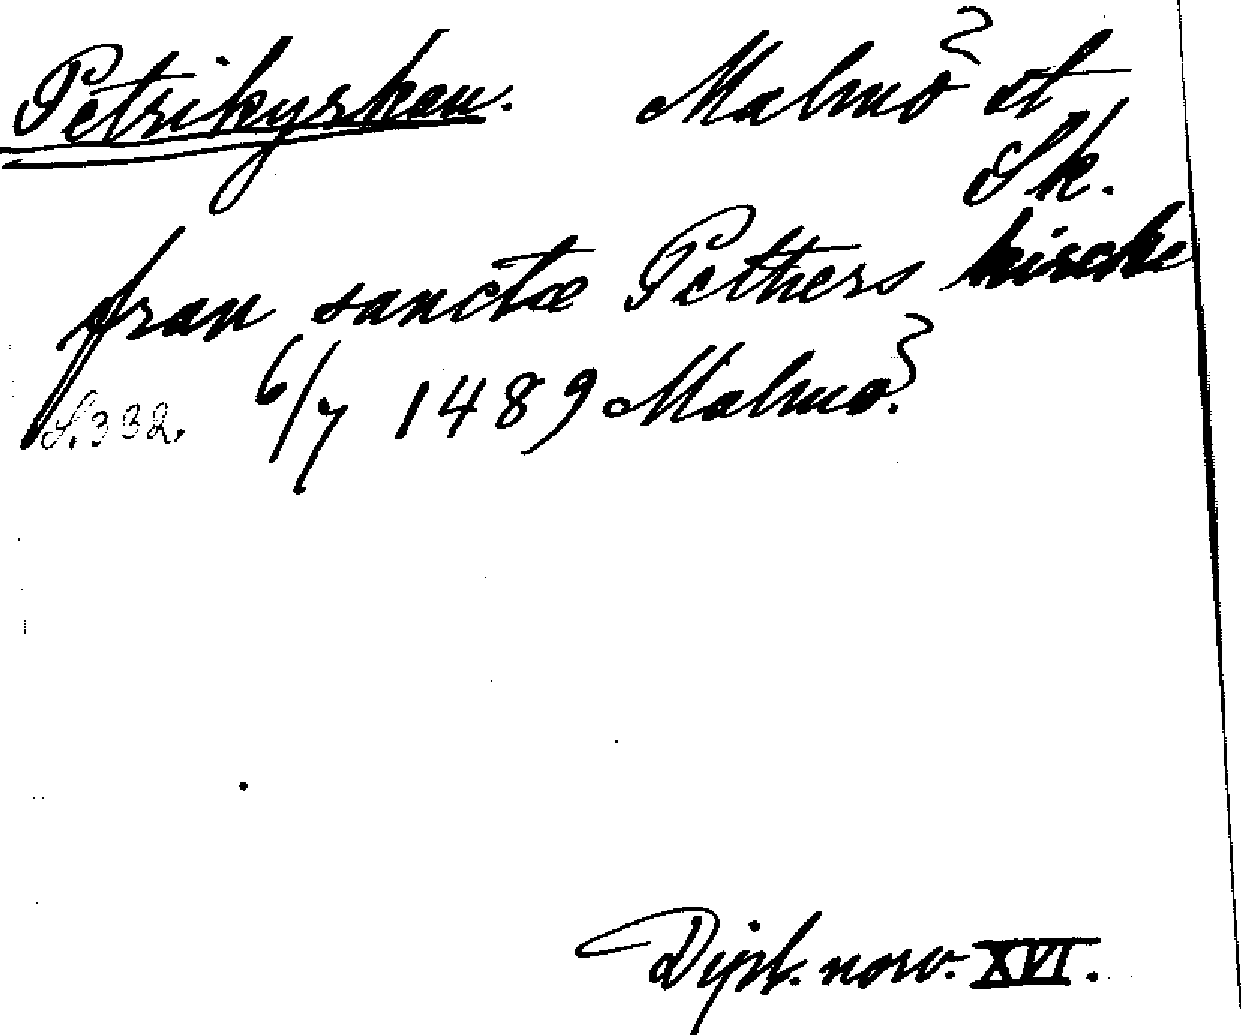 Petrikyrkan. Malmö st
Sk.
fran sanctæ Pethers kirche
S. 332. 6/7 1489 Malmö.
Dipl. norv. XVI.